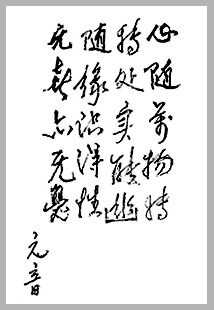 心随萬物转
转处实能幽
随缘识得性
无喜亦无憂
元音